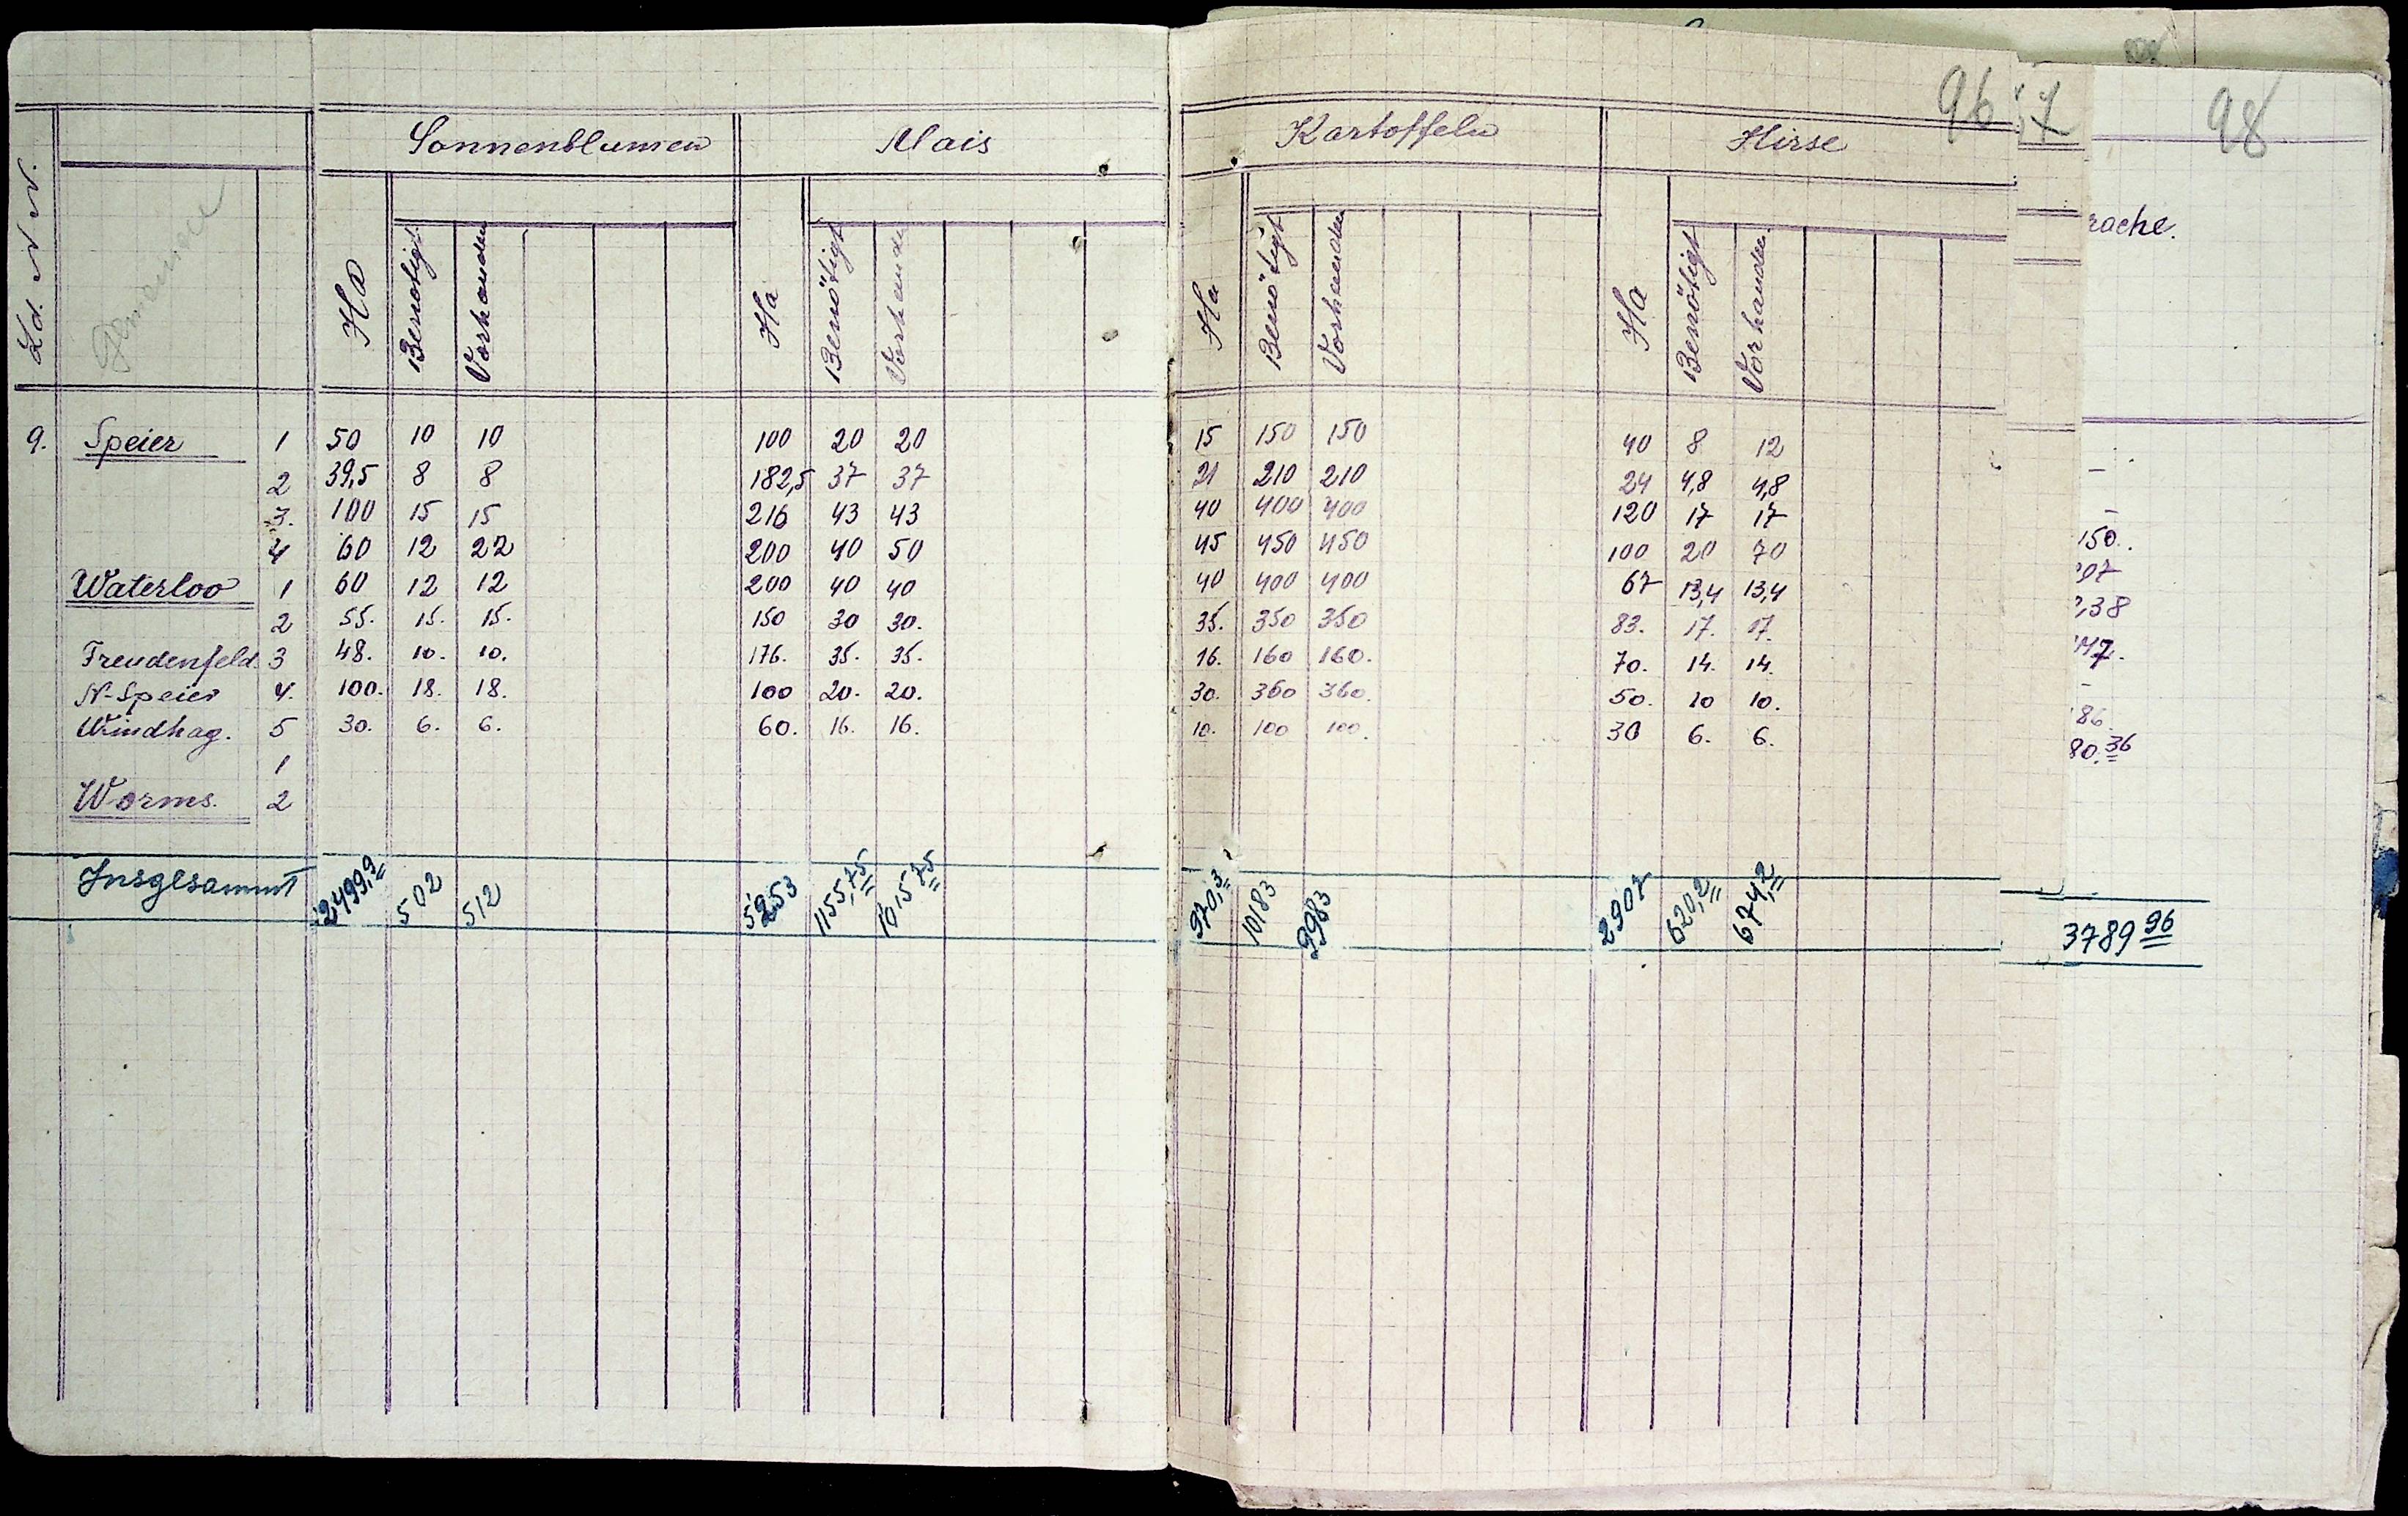 96 7 98
Sonnenblumen Mais Kartoffeln Hirse
rache.
Ld. N N. Gemeinde Ha Benötigt Vorhanden Ha Benötigt Vorhanden Ha Benötigt Vorhanden Ha Benötigt Vorhanden
9. Speier 1 50 10 10 100 20 20 15 150 150 40 8 12
2 39,5 8 8 182,5 37 37 21 210 210 24 4,8 4,8 –
3. 100 15 15 216 43 43 40 400 400 120 17 17 –
4 60 12 22 200 40 50 45 450 450 100 20 70 150.
Waterloo 1 60 12 12 200 40 40 40 400 400 67 13,4 13,4 97
2 55. 15. 15. 150 30 30. 35. 350 350 83. 17. 17. ,38
Freudenfeld 3 48. 10. 10. 176. 35. 35. 16. 160 160. 70. 14. 14. 47.
N-Speier 4. 100. 18. 18. 100 20. 20. 30. 360 360. 50. 10 10. –
Windhag. 5 30. 6. 6. 60. 16. 16. 10. 100 100. 30 6. 6. 86.
1 80.36
Worms. 2
Insgesammt 2499,9 502 512 5253 1155,75 1015,75 970,3 10183 9983 2907 620,2 674,2 3789 96